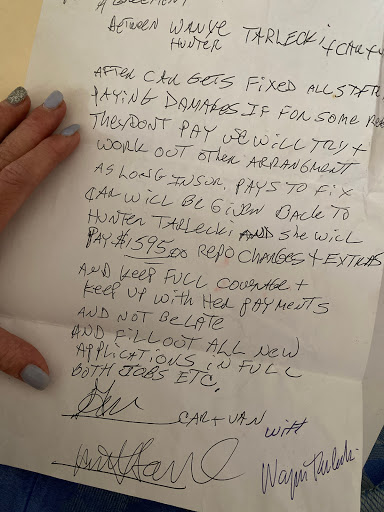 AGREEMENT
BETWEEN WANYE TARLECKI + CAR + V
HUNTER
AFTER CAR GETS FIXED ALLSTAR
PAYING DAMAGES IF FOR SOME
THEY DONT PAY WE WILL TRY +
WORK OUT OTHER ARRANGMENT
AS LONG INSUR. PAYS TO FIX
CAR WILL BE GIVEN BACK TO
HUNTER TARLECKI AND SHE WILL
PAY $1,595.00 REPO CHARGES + EXTRAS
AND KEEP FULL COVERAGE +
KEEP UP WITH HER PAYMENTS
AND NOT BE LATE
AND FILL OUT ALL NEW
APPLICATIONS IN FULL
BOTH JOBS ETC.
CAR + VAN
witt